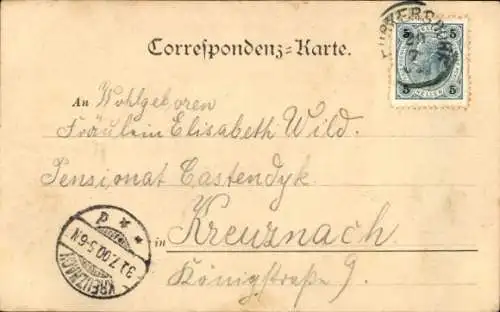 Correspondenz-Karte.
5 5
5 HELLER 5
An Wohlgeboren
Fräulein Elisabeth Wild.
Pensionat Castendyk
in Kreuznach
Königstraße 9.
KREUZNACH
30.7.00.5-6N